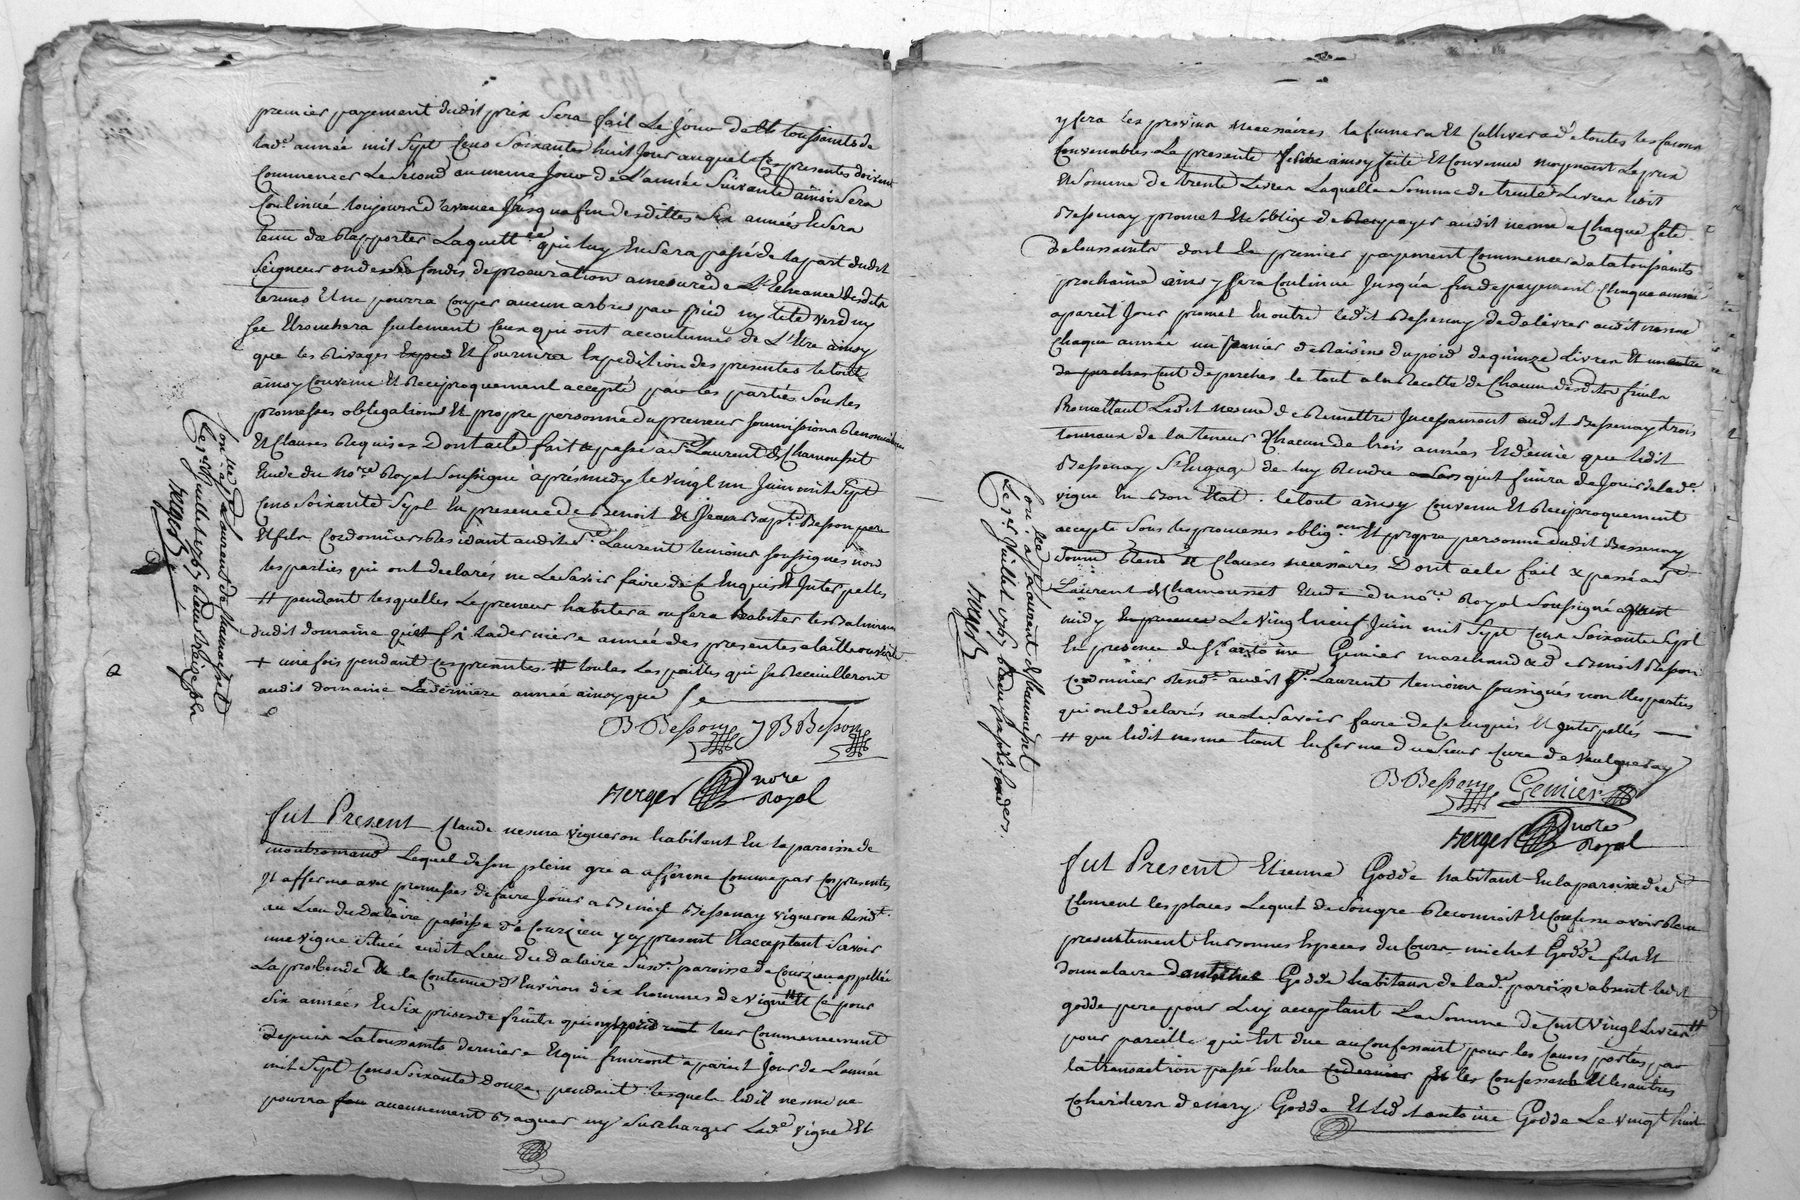 premier payement dudit prix sera fait le jour de toussaints de
lade. année mil sept cens soixante huit jour auquel ces presentes doivent
commencer le second au meme jour de l'année suivante ainsi sera
continué toujours d'avance jusqu'a fin desdittes six années et sera
tenu de rapporter laquitt.ce qui luy en sera passé de la part dudit
seigneur ou de ses fondés de procuration a mesure de l'echeance desdits
termes et ne pourra couper aucun arbres par pied ny tete verd ny
sec et ebranchera seulement ceux qui ont accoutumé de l'etre ainsy
que les rivages et fournira expedition des presentes le tout
ainsy convenu et reciproquement accepté par les parties sous les
promesses obligations et propre personne du preneur soumissions renonciations
et clauses requises dont acte fait & passé a St. Laurent de Chamousset
etude du no.re royal soussigné après midy le vingt un juin mil sept
cens soixante sept en presence de Benoit et Jean Bapt. Besson pere
et fils cordonniers residant audit St. Laurent temoins soussignés non
les parties qui ont declarés ne le savoir faire de ce enquis et interpellés
# pendant lesquelles le preneur habitera ou fera habiter les batiments
dudit domaine
+ une fois pendant ces presentes # toutes les pailles qui se recueilleront
audit domaine la derniere année ainsy que
B Besson J B Besson
Berger nore Royal
Con.lé a St Laurent de Chamousset
le 1er juillet 1767
Berger
fut Present Claude nesme vigneron habitant en la paroisse de
montromand lequel de son plein gre a affermé comme par ces presentes
il afferme avec promesses de faire jouir a Benoit Bessenay vigneron resid.t
au lieu du dalaire paroisse de Courzieu y present et acceptant savoir
une vigne située audit lieu du dalaire sus.e paroisse de Courzieu appellée
la probende de la contenue d'environ dix hommes de vigne # et ce pour
six années et six prises de fruits qui ont leur commencement
depuis la toussaints derniere et qui finiront a pareil jour de l'année
mil sept cens soixante douze pendant lesquels ledit nesme ne
pourra aucunement ny surcharger lad.e vigne et
y fera les provins necessaires la fumera et cultivera de toutes les façons
convenables la presente ferme ainsy faite et convenue moyenant le prix
et somme de trente livres laquelle somme de trente livres ledit
Bessenay promet et s'oblige de payer audit nesme a chaque fête
de toussaints dont le premier payement commencera a la toussaints
prochaine ainsy sera continué jusqu'a fin de payement chaque année
a pareil jour promet en outre ledit Bessenay de delivrer audit nesme
chaque année un panier de raisins du poid de quinze livres et
cent de perches le tout a la recolte de chacun desdits fruits
Promettant ledit nesme de remettre incessamment audit Bessenay trois
tonneaux de la teneur chacun de trois années et demie que ledit
Bessenay s'engage de luy rendre lorsqu'il finira de jouir de lad.e
vigne en bon etat. le tout ainsy convenu et reciproquement
accepté sous les promesses oblig.ons et propre personne dudit Bessenay
et clauses necessaires dont acte fait & passé a St
Laurent de Chamousset etude du no.re royal soussigné avant
midy le vingt neuf juin mil sept cens soixante sept
en presence de Sr. antoine Genier marchand & de Benoit Besson
cordonnier resid.t audit St. Laurent temoins soussignés non les parties
qui ont declarés ne le savoir faire de ce enquis et interpellés
# que ledit nesme tient en ferme du sieur cure de vaugneray
B Besson Genier
Berger nore Royal
Con.lé a St Laurent de Chamousset
le 1er juillet 1767
Berger
fut Present Etienne Godde habitant en la paroisse de St
Clement les places lequel de son gre reconnoit et confesse avoir reçu
presentement en bonnes especes du cours michel Godde fils et
donnataire d'antoine Godde habitans de lad.e paroisse absent ledit
godde pere pour luy acceptant la somme de cent vingt livres #
pour pareille qui est due au confessant pour les causes portées par
la transaction passé entre les confessant et les autres
cohéritiers de Godde et led.t antoine Godde le vingt huit